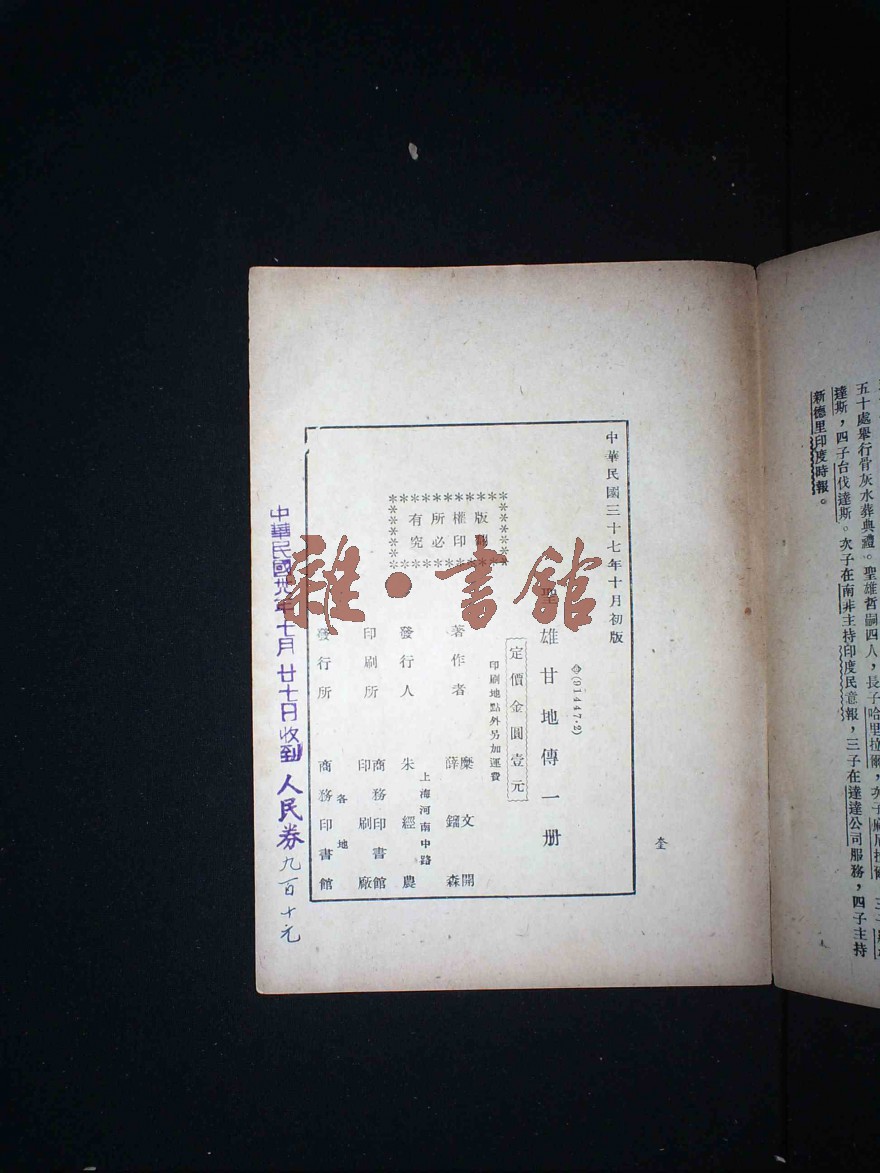 五十處舉行骨灰水葬典禮。聖雄哲嗣四人，長子哈里拉爾，次子麻尼拉爾
達斯，四子台伐達斯。次子在南非主持印度民意報，三子在達達公司服務，四子主持
新德里印度時報。
中華民國三十七年十月初版
◇(91447·2)
聖雄甘地傳一册
定價金圓壹元
印刷地點外另加運費
著作者 糜文開 薛鎦森
發行人 朱經農
上海河南中路
印刷所 商務印書館印刷廠
發行所 商務印書館
各地
版權所有
翻印必究
叁
雜·書館
中華民國卅八年十月廿七日收到人民券九百十元